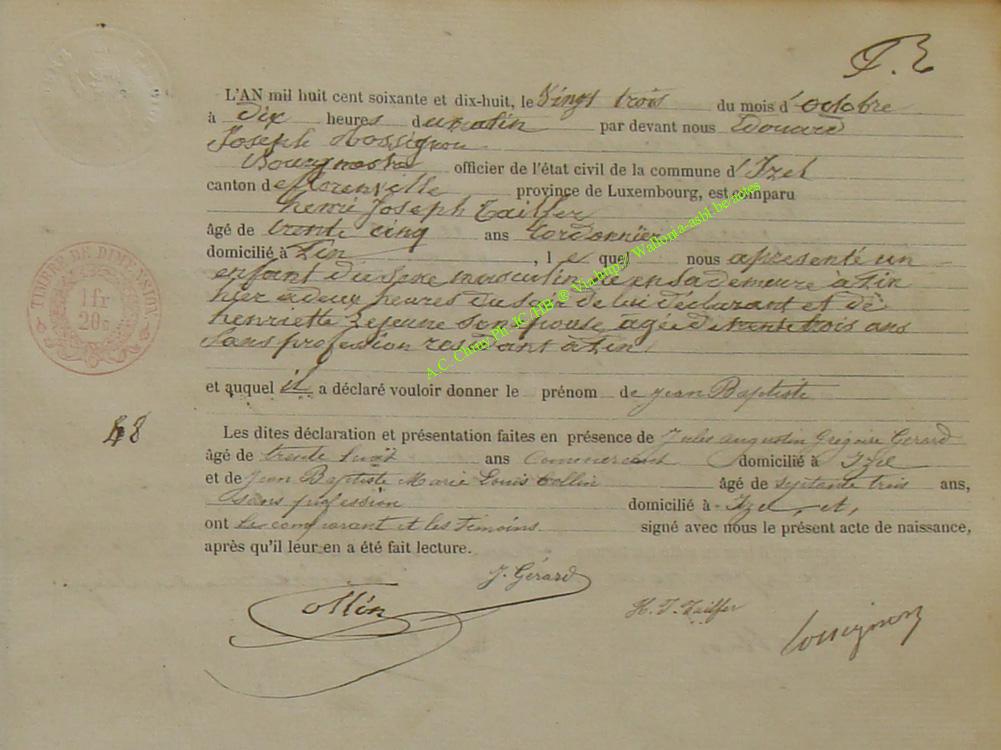 J. E
L'AN mil huit cent soixante et dix-huit, le Vingt trois du mois d'octobre
à Dix heures du matin par devant nous Edouard
Joseph Rossignon
Bourgmestre officier de l'état civil de la commune d'Izel
canton de florenville province de Luxembourg, est comparu
henri Joseph Tailfer
âgé de trente cinq ans Cordonnier
domicilié à Pin, lequel nous a présenté un
enfant du sexe masculin né en sa demeure à Pin
hier à deux heures du soir de lui déclarant et de
henriette Lejeune son épouse, âgée de trente trois ans
sans profession résidant à Pin,
et auquel il a déclaré vouloir donner le prénom de jean Baptiste
Les dites déclaration et présentation faites en présence de Jules augustin Grégoire Gerard
âgé de trente huit ans commercant domicilié à Izel
et de Jean Baptiste Marie Louis Collin âgé de septante trois ans,
sans profession domicilié à Izel, et,
ont les comparant et les témoins signé avec nous le présent acte de naissance,
après qu'il leur en a été fait lecture.
J. Gérard
Collin
H. J. Tailfer
Rossignon
TIMBRE DE DIMENSION
1 fr
20c
48
A.C. Chiny Ph. JC/HB ® Via http://Wallonia-asbl.be/notes